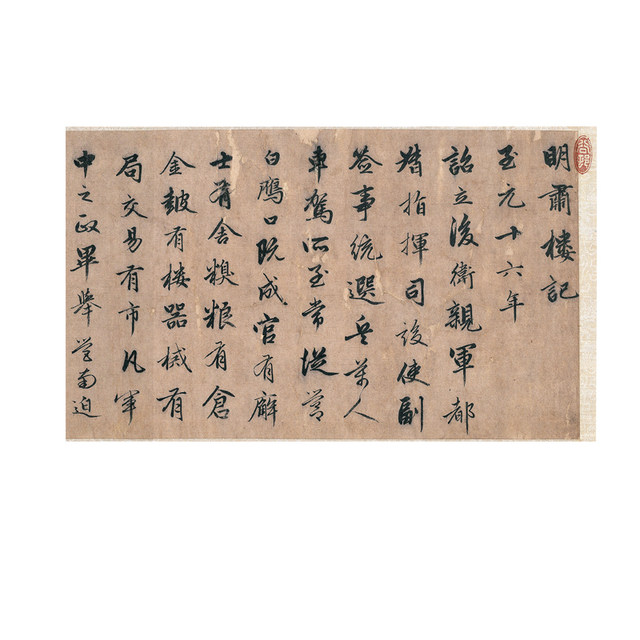 明肅樓記
至元十六年
詔立後衛親軍都
指揮司設使副
簽事統選兵萬人
車駕所至常從營
白鴈口既成官有廨
士有舍糗粮有倉
金皷有楼器械有
局交易有市凡軍
中之政畢舉營南迫